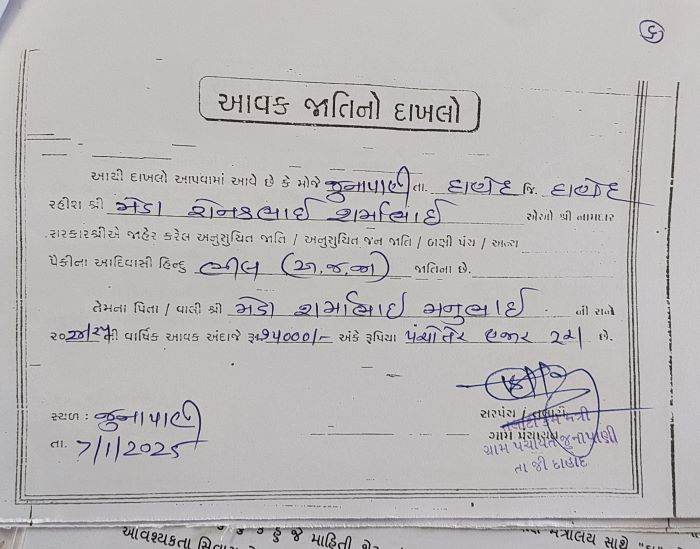 ૬
આવક જાતિનો દાખલો
આથી દાખલો આપવામાં આવે છે કે મોજે જુનાપાણી તા. દાહોદ જિ. દાહોદ
રહીશ શ્રી મેડા રોનકભાઈ શર્માભાઈ એઓ શ્રી નામદાર
સરકારશ્રીએ જાહેર કરેલ અનુસુચિત જાતિ / અનુસુચિત જન જાતિ / બક્ષી પંચ / અન્ય
પૈકીના આદિવાસી હિન્દુ ભીલ (અ.જ.જા) જાતિના છે.
તેમના પિતા / વાલી શ્રી મેડા શર્માભાઈ મનુભાઈ ની સને
૨૦૨૪/૨૫ની વાર્ષિક આવક અંદાજે રૂ ૭૫૦૦૦/- અંકે રૂપિયા પંચોતેર હજાર પુરા છે.
સ્થળ : જુનાપાણી
તા. 7/1/2025
સરપંચ /
ગ્રામ પંચાયત
તલાટી કમ મંત્રી
ગ્રામ પંચાયત જુનાપાણી
તા જી દાહોદ
આવશ્યકતા
જ માહિતી
મંત્રાલય સાથે